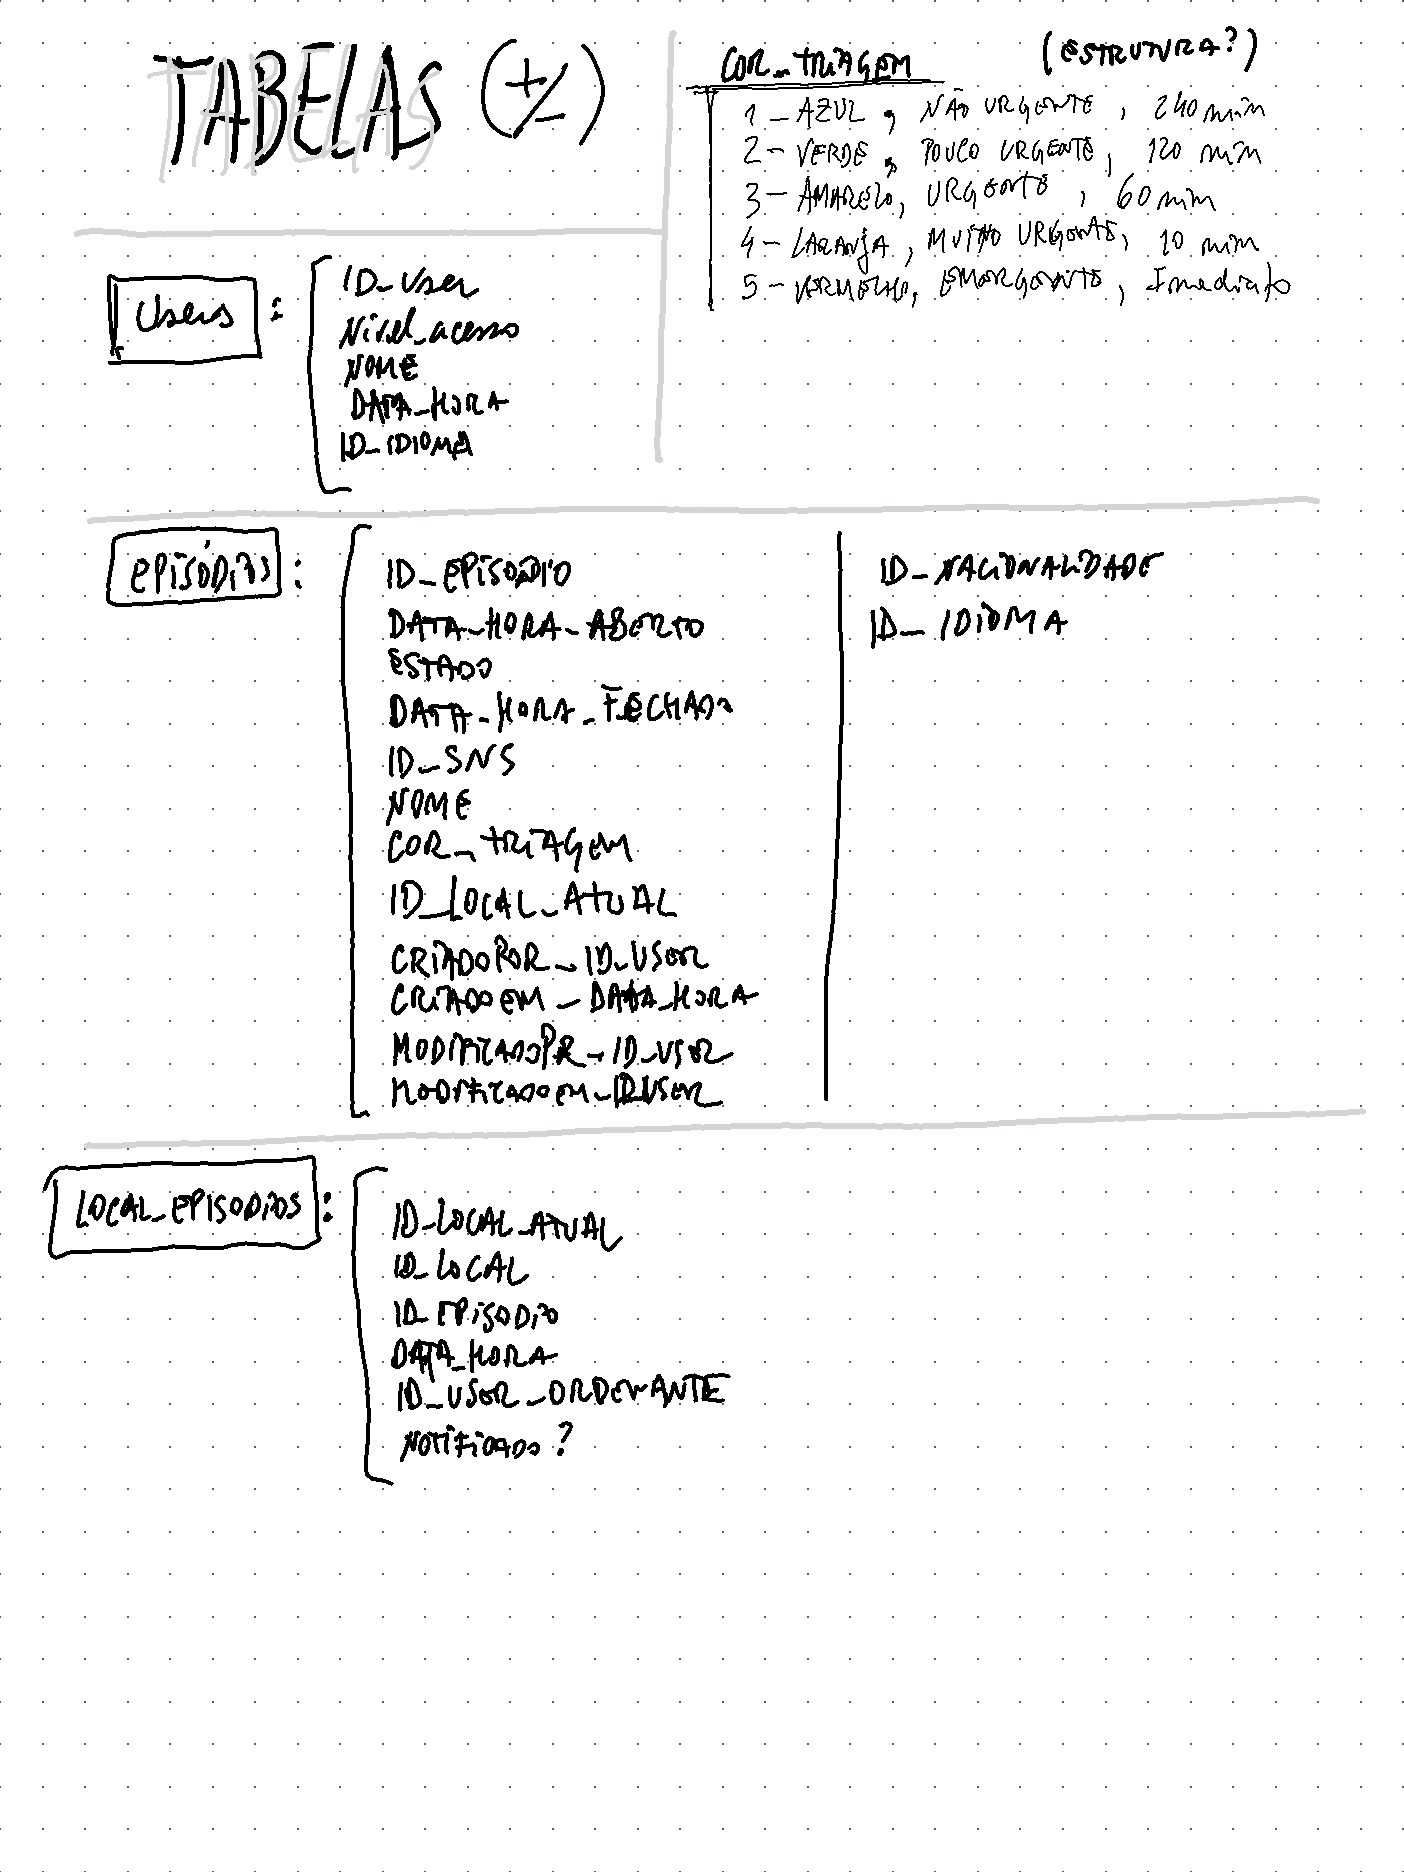 TABELAS (+/-)
COR_TRIAGEM (ESTRUTURA?)
1 - AZUL, NÃO URGENTE, 240 min
2 - VERDE, POUCO URGENTE, 120 min
3 - AMARELO, URGENTE, 60 min
4 - LARANJA, MUITO URGENTE, 10 min
5 - VERMELHO, EMERGENTE, Imediato
Users :
ID_User
Nivel_acesso
NOME
DATA_HORA
ID_IDIOMA
EPISÓDIOS :
ID_EPISODIO
DATA_HORA_ABERTO
ESTADO
DATA_HORA_FECHADO
ID_SNS
NOME
COR_TRIAGEM
ID_LOCAL_ATUAL
CRIADOPOR_ID_USER
CRIADOEM_DATA_HORA
MODIFICADOPOR_ID_USER
MODIFICADOEM_ID_USER
ID_NACIONALIDADE
ID_IDIOMA
LOCAL_EPISODIOS :
ID_LOCAL_ATUAL
ID_LOCAL
ID_EPISODIO
DATA_HORA
ID_USER_ORDENANTE
NOTIFICADO?